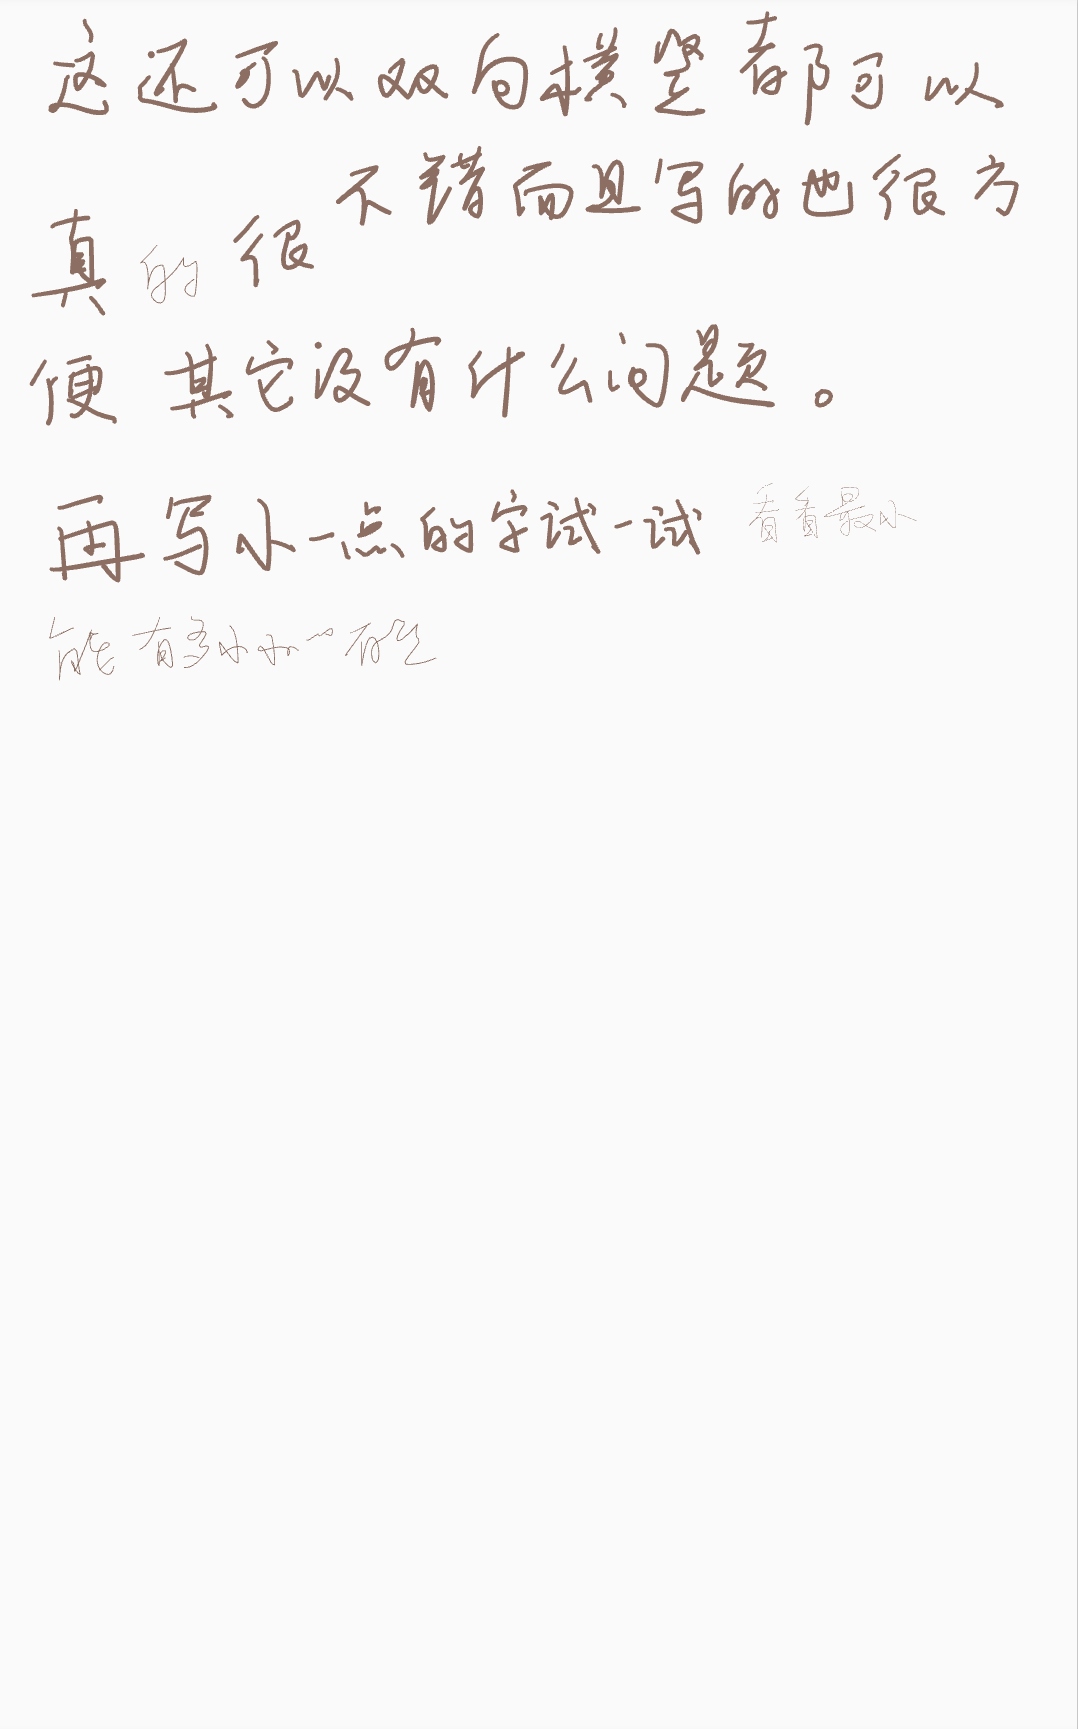 这还可以双向横竖都可以
真的很不错而且写的也很方
便 其它没有什么问题。
再写小一点的字试一试 看看最小
能有多小